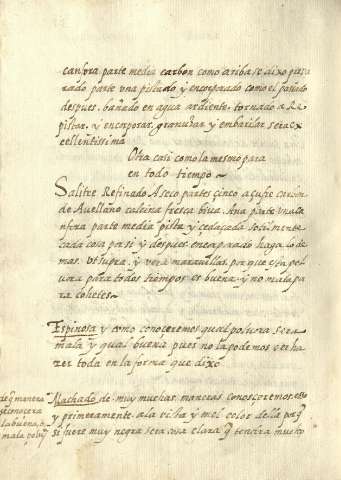 canfora parte media carbon como ariba se dixo prepa
rado parte una pistado y encorporado como el pasado
despues, bañado en agua ardiente, tornado a Re
pistar, y encorporar, granuzar y embarilar sera ex
cellentissima
Otra casi como la mesmo para
en todo tiempo
Salitre Refinado Aseco partes cinco açufre carvon
de Avellano calcina fresca biva. Ana parte una can
fora parte media pista y cedaçada sotilmente
cada cosa por si y despues encorporado haga lo de
mas. ut supra, y vera maravillas, porque esta pol
vora para todos tiempos es buena y no mala pa
ra cohetes
Espinosa y como conoceremos qual polvora sera
mala y qual buena pues no la podemos ver ha
zer toda en la forma que dixo
de q manera
se conocera
la buena, o
mala polvora
Machado de muy muchas maneras conosceremos esso
y primeramente a la vista y mel color della porq
si fuere muy negra sera cosa clara q tendra mucho